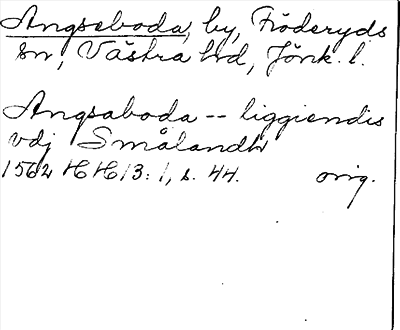 Angseboda, by, Fröderyds
sn, Västra hd, Jönk. l.
Angsaboda -- liggiendis
vdj Smålandh
1562 HH 13:1, s. 44. orig.